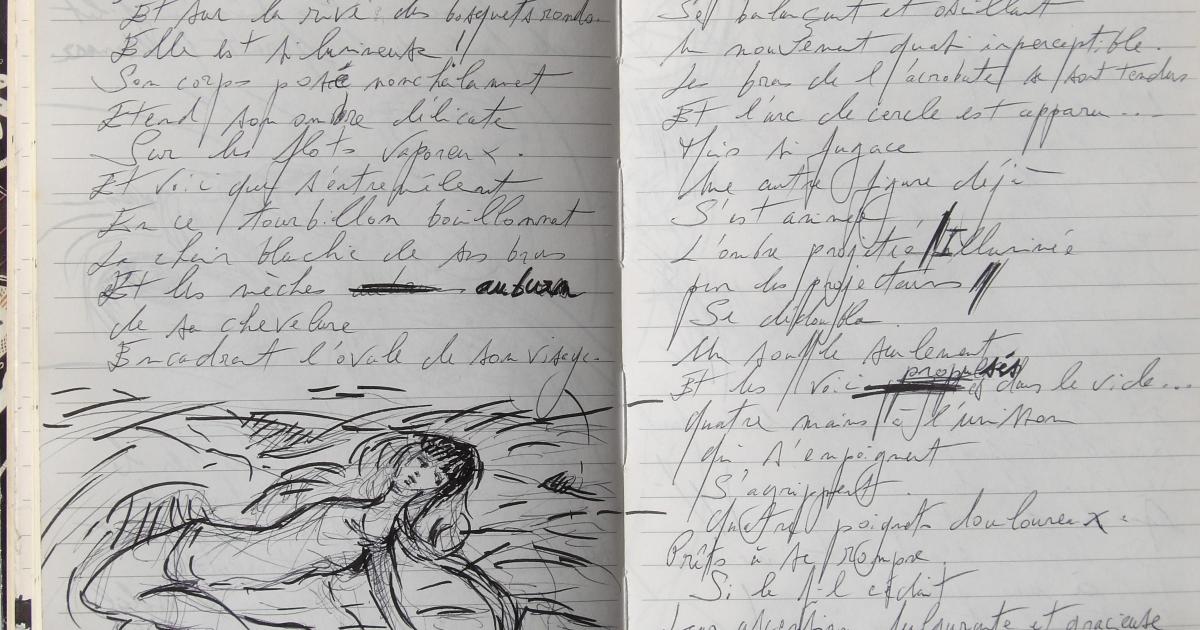 Et sur la rive des bosquets ronds
Elle est si lumineuse !
Son corps posé nonchalamment
Etend son ombre délicate
Sur les flots vaporeux.
Et voici que s'entremêlent
En ce tourbillon bouillonnant
La chair blache de ses bras
Et les mèches auburn
de sa chevelure
Encadrant l'ovale de son visage.
S'est balançant et oscillant
Un mouvement quasi imperceptible.
Les bras de l'acrobate se sont tendus
Et l'arc de cercle est apparu....
Mais si fugace
Une autre figure déjà
S'est animée
L'ombre projetée Illuminée
par les projecteurs
Se dédoubla.
Un souffle seulement
Et les voici propulsés dans le vide...
Quatre mains à l'unisson
Qui s'empoignent
S'agrippent.
Quatre poignets douloureux.
Prêts à se rompre
Si le fil cédait
ascension et gracieuse